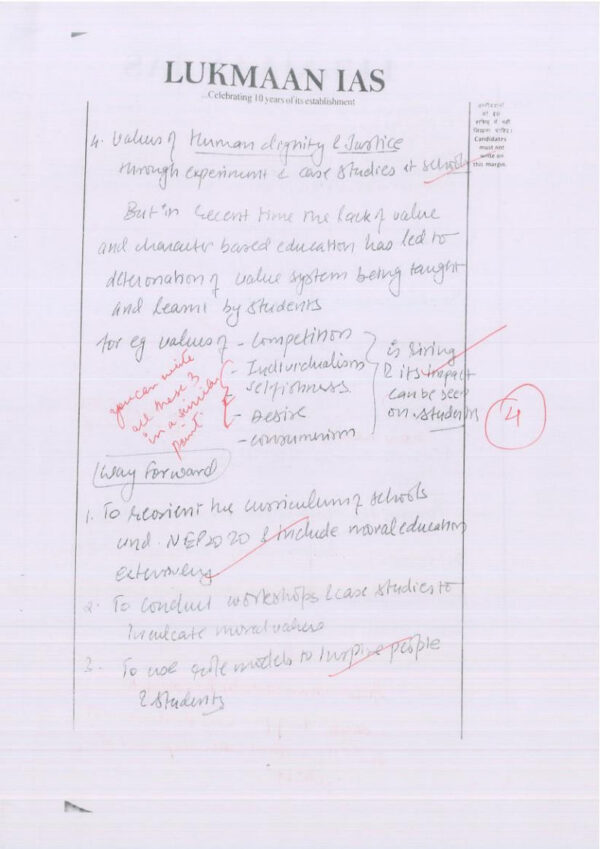 LUKMAAN IAS
...Celebrating 10 years of its establishment
Candidates
must not
write on
this margin.
4. Values of Human dignity & Justice
through experiment & case studies at schools
But in recent time the lack of value
and character based education has led to
deterioration of value system being taught
and learnt by students
for eg values of - Competition
- Individualism
selfishness
- Desire
- Consumerism
is rising
& its impact
can be seen
on students
you can write
all these 3
in a similar
point
4
Way forward
1. To reorient the curriculum of schools
und. NEP 2020 & include moral education
2. To conduct workshops & case studies to
inculcate moral values
3. To use models to inspire people
& students